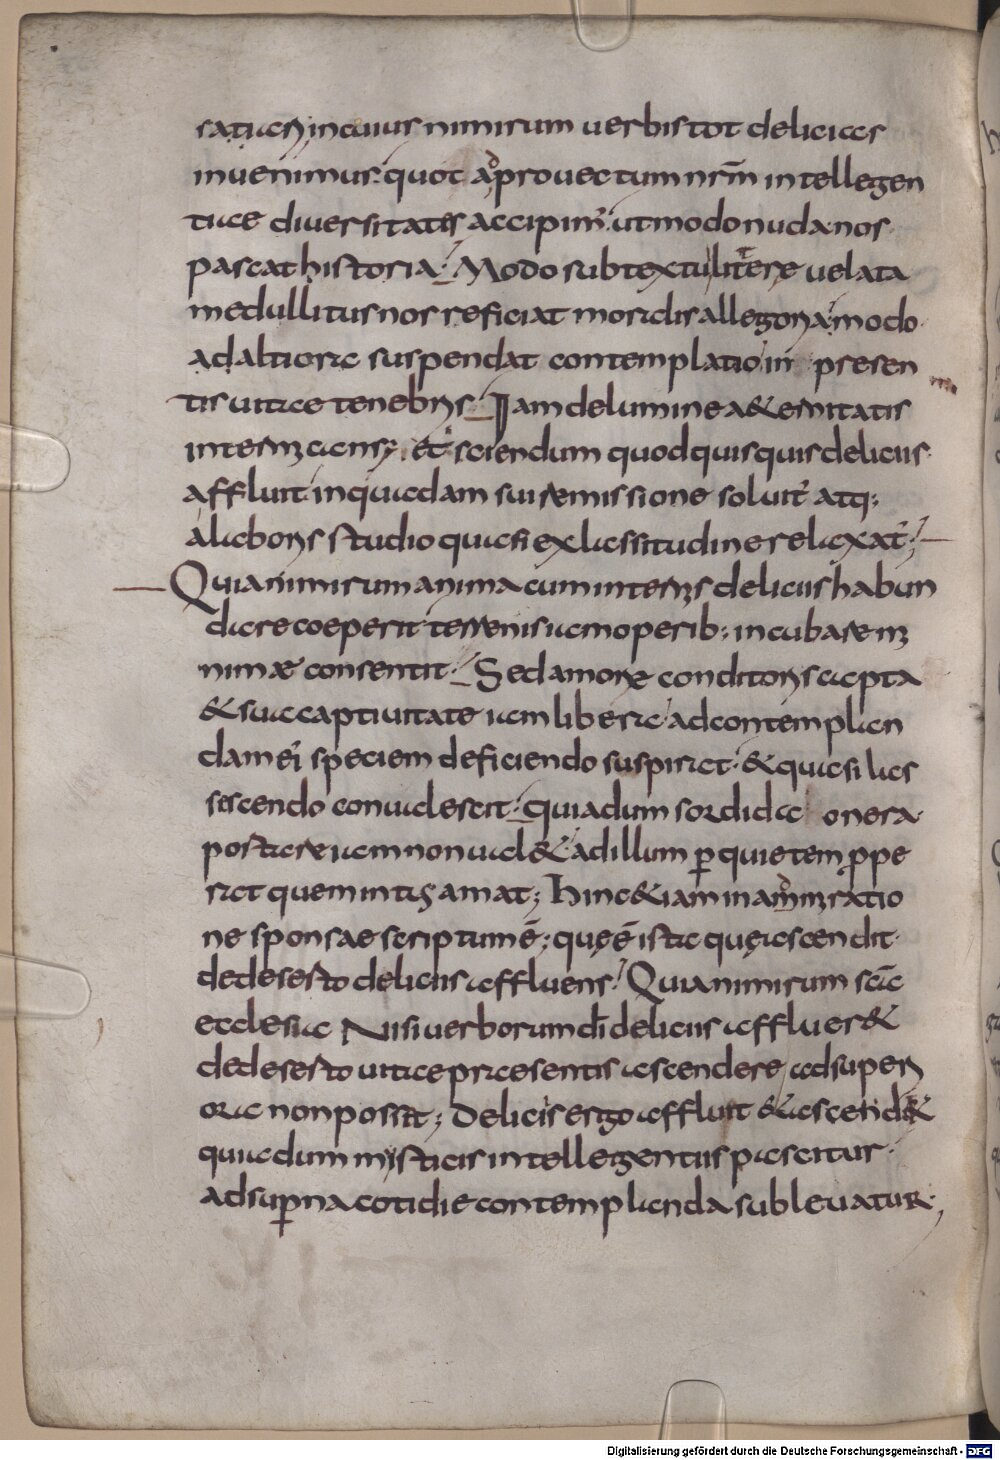 ratiae; in cuius nimirum uerbis tot delicias
inuenimus· quot ad prouectum nrm̄ intellegen
tiae diuersitates accipim'· ut modo nuda nos
pascat historia· Modo sub textu litterę uelata
medullitus nos reficiat moralis allegoria· modo
ad altiora suspendat contemplatio· in presen
tis uitae tenebris· Iam de lumine aeternitatis
intermicans; et sciendum quod quisquis deliciis
affluit· in quadam sui remissione soluit' atq;
a laboris studio quasi ex lassitudine relaxat';
Quia nimirum anima cum internis deliciis habun
dare coeperit· terrenis iam operib; incubare mi
nime consentit· Sed amore conditoris capta
& sua captiuitate iam libera· ad contemplan
dam ei' speciem deficiendo suspirat· & quasi las
sescendo conualescit· quia dum sordida onera
postare iam non ual& ad illum p quietem prope
rat quem intus amat; Hinc &iam in admiratio
ne sponsae scriptum ē; quę ē ista quę ascendit
de deserto deliciis affluens· Quia nimirum scā
ecclesia Nisi uerborum dī deliciis afflueret
de deserto uitae praesentis ascendere ad superi
ora non possit; deliciis ergo affluit & ascendit
quia dum mysticis intellegentiis pascitur·
ad sup̄na cotidie contemplanda subleuatur·